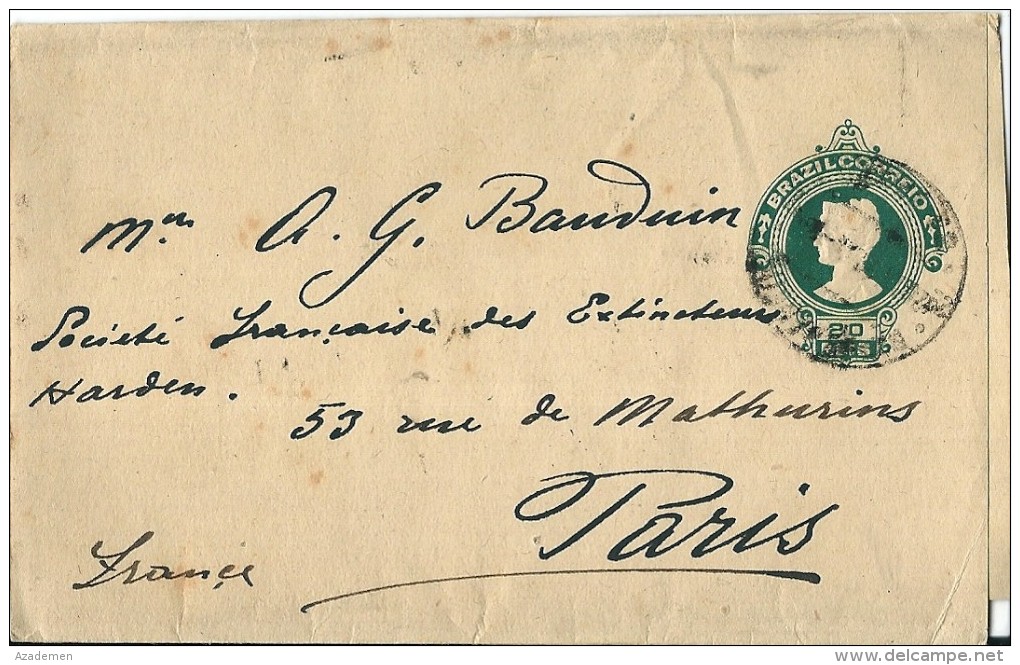 BRAZIL CORREIO
20
REIS
Mʳ A. G. Bauduin
Société Française des Extincteurs
Harden.
53 rue de Mathurins
Paris
França
Azademen
delcampe.net